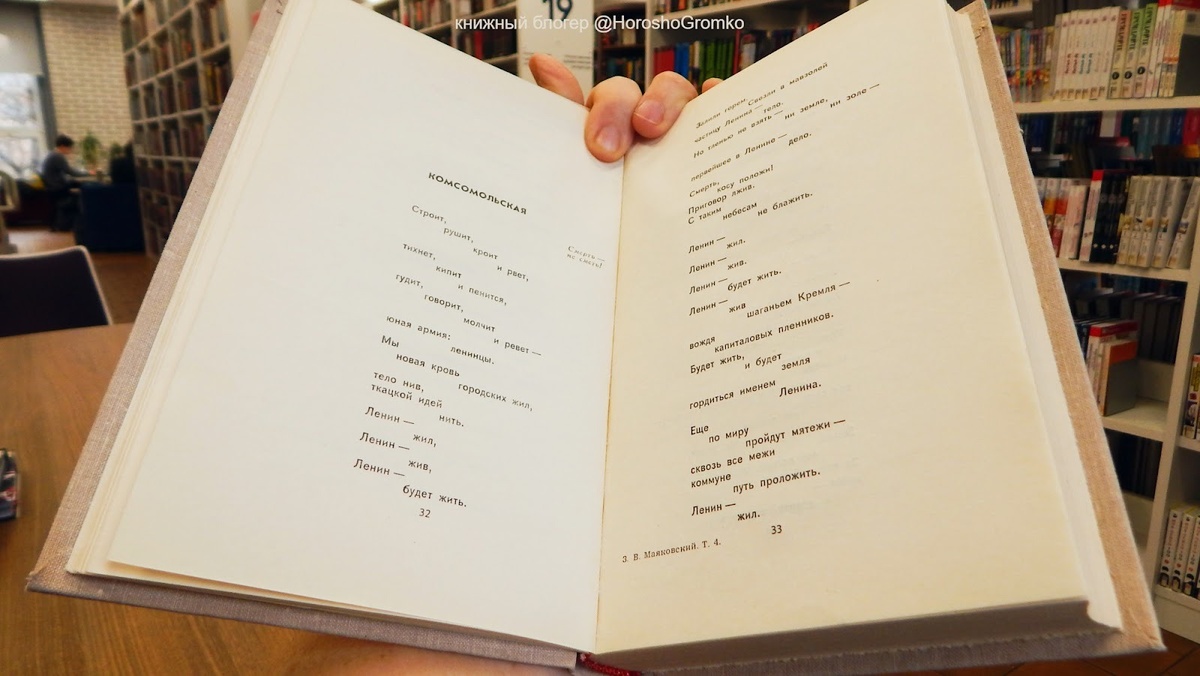 книжный блогер @HoroshoGromko
19
КОМСОМОЛЬСКАЯ
Смерть —
не сметь!
Строит,
рушит,
кроит
и рвет,
тихнет,
кипит
и пенится,
гудит,
говорит,
молчит
и ревет —
юная армия:
ленинцы.
Мы
новая кровь
городских жил,
тело нив,
ткацкой идей
нить.
Ленин —
жил,
Ленин —
жив,
Ленин —
будет жить.
32
Залили горем.
Свезли в мавзолей
частицу Ленина —
тело.
Но тленью не взять —
ни земле,
ни золе —
первейшее в Ленине —
дело.
Смерть,
косу положи!
Приговор лжив.
С таким
небесам
не блажить.
Ленин —
жил.
Ленин —
жив.
Ленин —
будет жить.
Ленин —
жив
шаганьем Кремля —
вождя
капиталовых пленников.
Будет жить,
и будет
земля
гордиться именем
Ленина.
Еще
по миру
пройдут мятежи —
сквозь все межи
коммуне
путь проложить.
Ленин —
жил.
33
3. В. Маяковский. Т. 4.